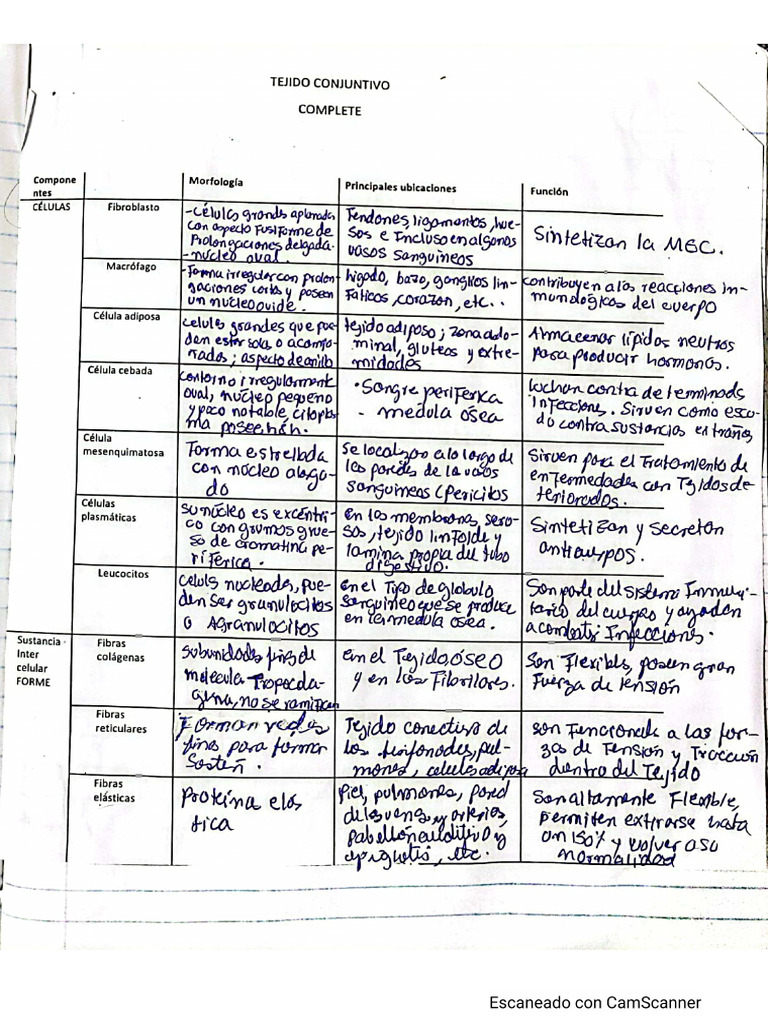 TEJIDO CONJUNTIVO
COMPLETE
Compone
ntes
Morfología
Principales ubicaciones
Función
CÉLULAS
Fibroblasto
-Células grandes aplanadas
con aspecto Fusiforme de
Prolongaciones delgada-
-nucleo oval.
Tendones, ligamentos, hue-
sos e Incluso en algunos
vasos sanguineos
Sintetizan la MEC.
Macrófago
-Forma irregular con prolon-
gaciones cortas y poseen
un nucleo ovide.
higado, bazo, ganglios lin-
Faticos, corazon, etc..
contribuyen a las reacciones in-
munológicas del cuerpo
Célula adiposa
celulas grandes que pue-
den estar sola o acompa-
ñadas; aspecto de anillo
tejido adiposo; zona abdo-
minal, gluteos y extre-
midades
Almacenar lípidos neutros
para producir hormonas.
Célula cebada
contorno irregularment
oval, nucleo pequeño
y poco notable, citopla
ma poseen
•Sangre periferica
- medula osea
luchan contra determinads
infecciones. Sirven como escu-
do contra sustancias extrañas
Célula
mesenquimatosa
Forma estrellada
con nucleo alarga
do
se localizan a lo largo de
las paredes de la vasos
sanguineas (Pericitos
Sirven para el Tratamiento de
enfermedades con Tejidos de-
teriorados.
Células
plasmáticas
su núcleo es excéntri
co con grumos grue
so de cromatina pe-
riférica.
en las membranas sero-
sas, tejido linfoide y
lamina propia del tubo
digestivo.
Sintetizan y secretan
anticuerpos.
Leucocitos
celuls nucleadas, pue-
den ser granulocitos
o Agranulocitos
en el Tipo de globulo
sanguineo que se produce
en la medula osea.
Son parte del sistema Inmuni-
tario del cuerpo y ayudan
a combatir Infecciones.
Sustancia
Inter
celular
FORME
Fibras
colágenas
subunidades finas de
molecula Tropocola-
gena, no se ramifican
en el Tejido óseo
y en las Fibrilares.
Son Flexibles, poseen gran
Fuerza de tensión
Fibras
reticulares
Forman redes
finas para formar
Sosten.
Tejido conectivo de
los linfonodes, pul-
mones, celulas adiposa
son Funcionale a las fuer-
zas de Tension y Tracción
dentro del Tejido
Fibras
elásticas
Proteina elas
tica
Piel, pulmones, pared
de las venas y arterias,
pabellón auditivo y
epiglotis, etc.
Son altamente Flexible,
permiten estirarse hasta
un 150% y volver a su
normalidad
Escaneado con CamScanner